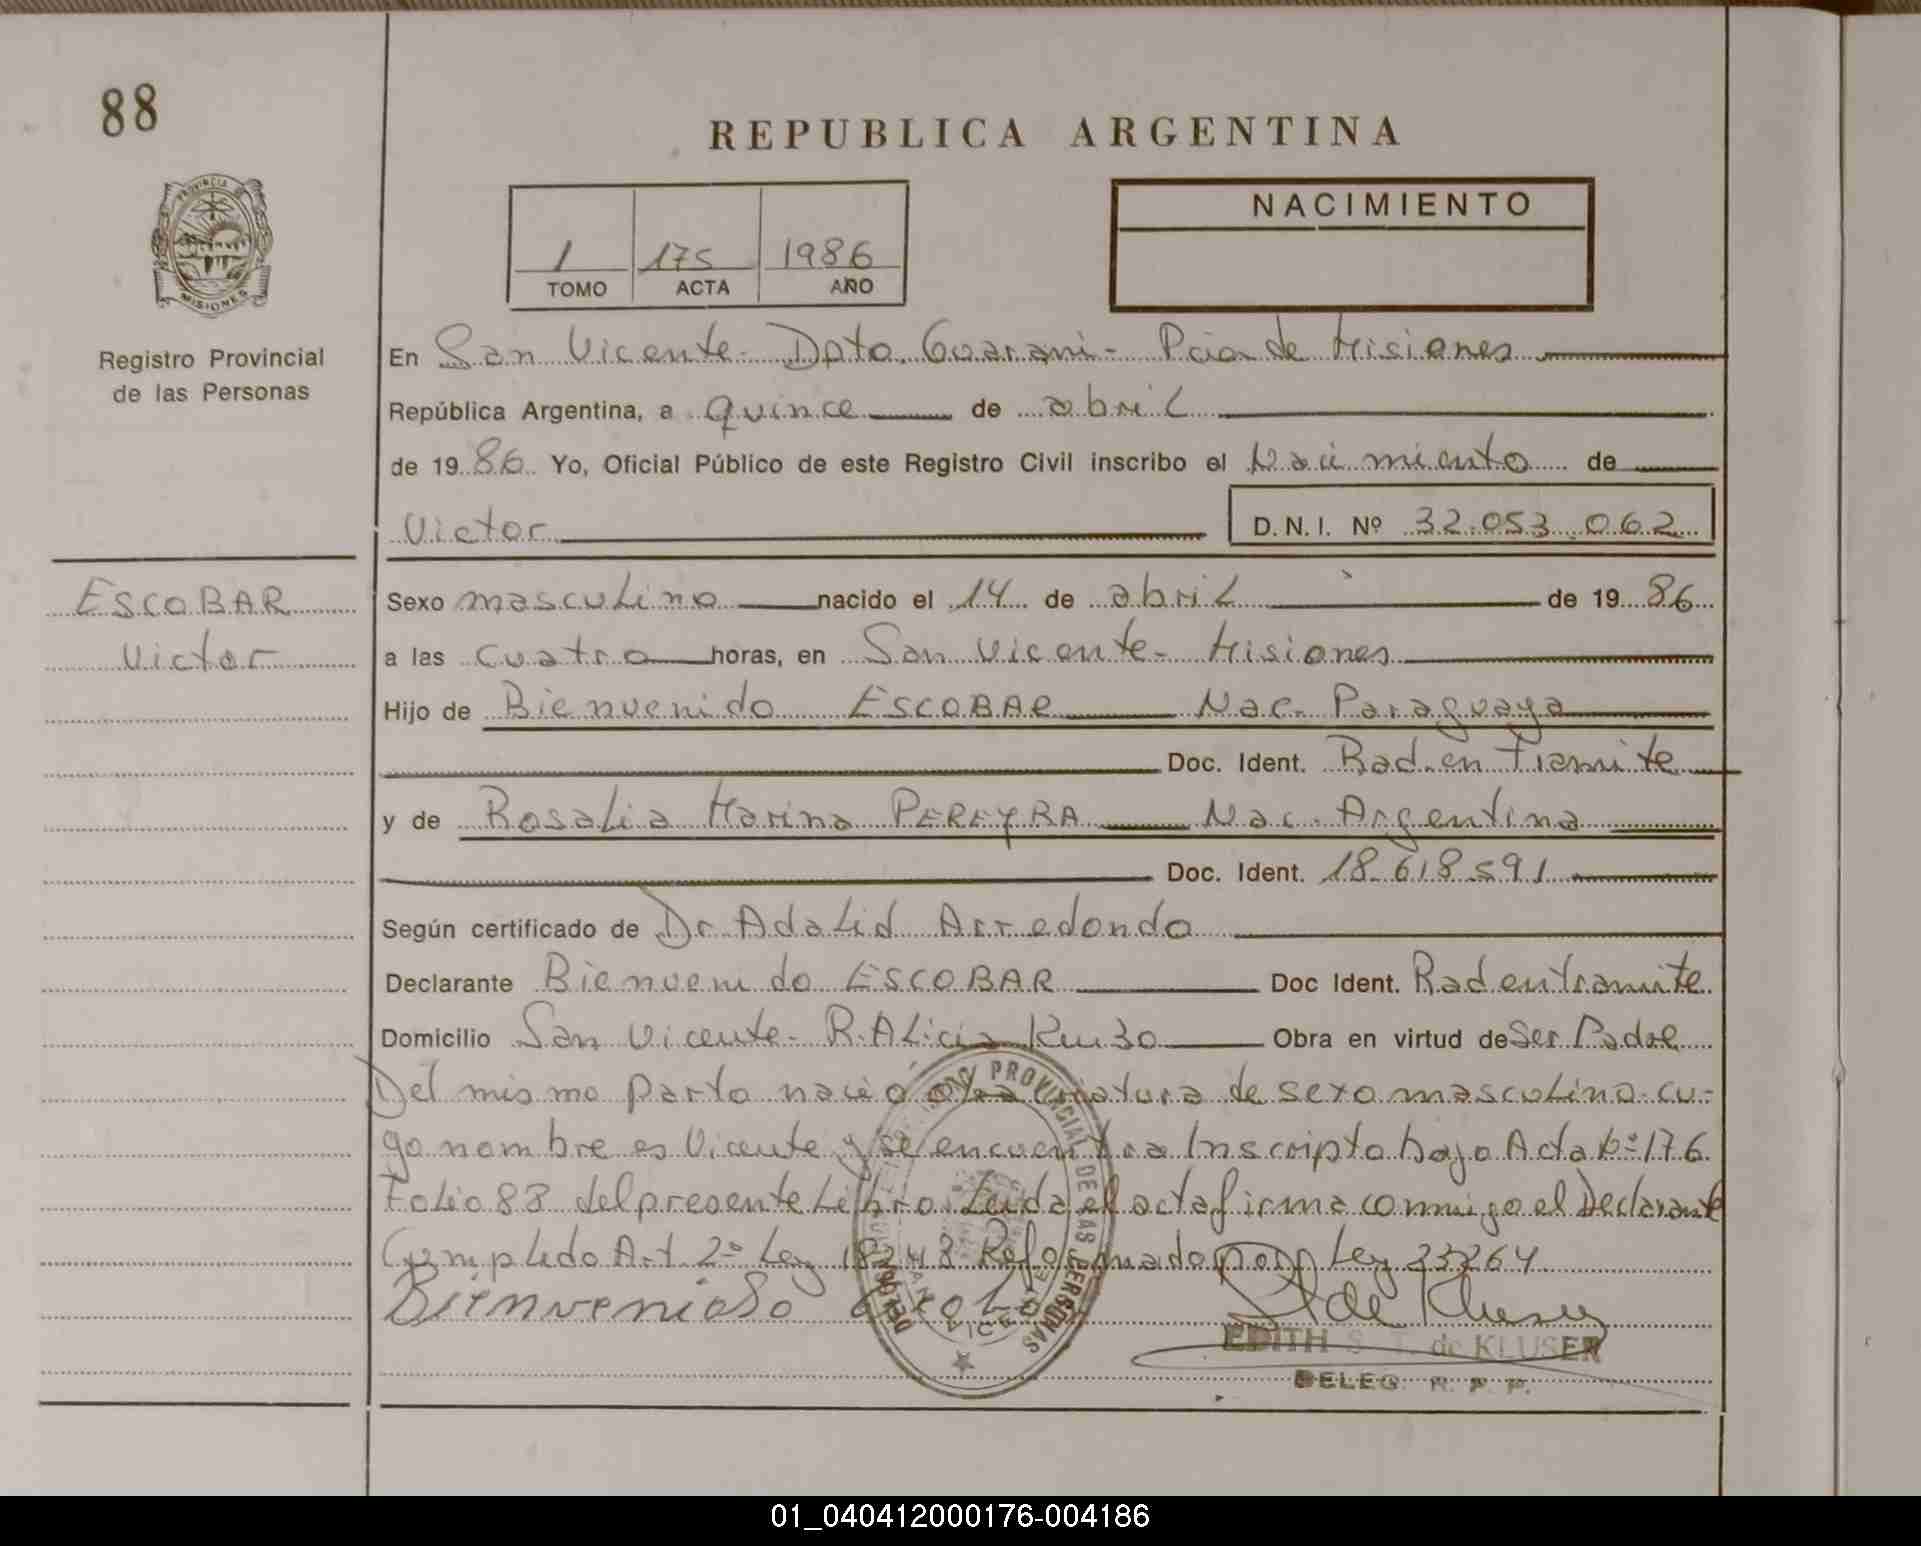 88
REPUBLICA ARGENTINA
PROVINCIA DE
MISIONES
Registro Provincial
de las Personas
1 175 1986
TOMO ACTA AÑO
NACIMIENTO
En San Vicente - Dpto. Guarani - Pcia de Misiones
República Argentina, a quince de abril
de 1986 Yo, Oficial Público de este Registro Civil inscribo el Nacimiento de
Victor D.N.I. Nº 32.053.062
ESCOBAR
Victor
Sexo masculino nacido el 14 de abril de 1986
a las cuatro horas, en San Vicente - Misiones
Hijo de Bienvenido ESCOBAR Nac. Paraguaya
Doc. Ident. Rad. en Tramite
y de Rosalia Marina PEREYRA Nac. Argentina
Doc. Ident. 18.618.591
Según certificado de Dr Adalid Arredondo
Declarante Bienvenido ESCOBAR Doc Ident. Rad en tramite
Domicilio San Vicente - R. Alicia Km 30 Obra en virtud de Ser Padre
Del mismo parto nació otra criatura de sexo masculino cu-
yo nombre es Vicente y se encuentra Inscripto bajo Acta Nº 176
Folio 88 del presente Libro. Leida el acta firma conmigo el Declarante
Cumplido Art. 2º Ley 18248 Reformado por Ley 23264
Bienvenido
EDITH S. T. de KLUSER
DELEG. R. P. P.
PROVINCIAL DE LAS PERSONAS
SAN VICENTE
01_040412000176-004186